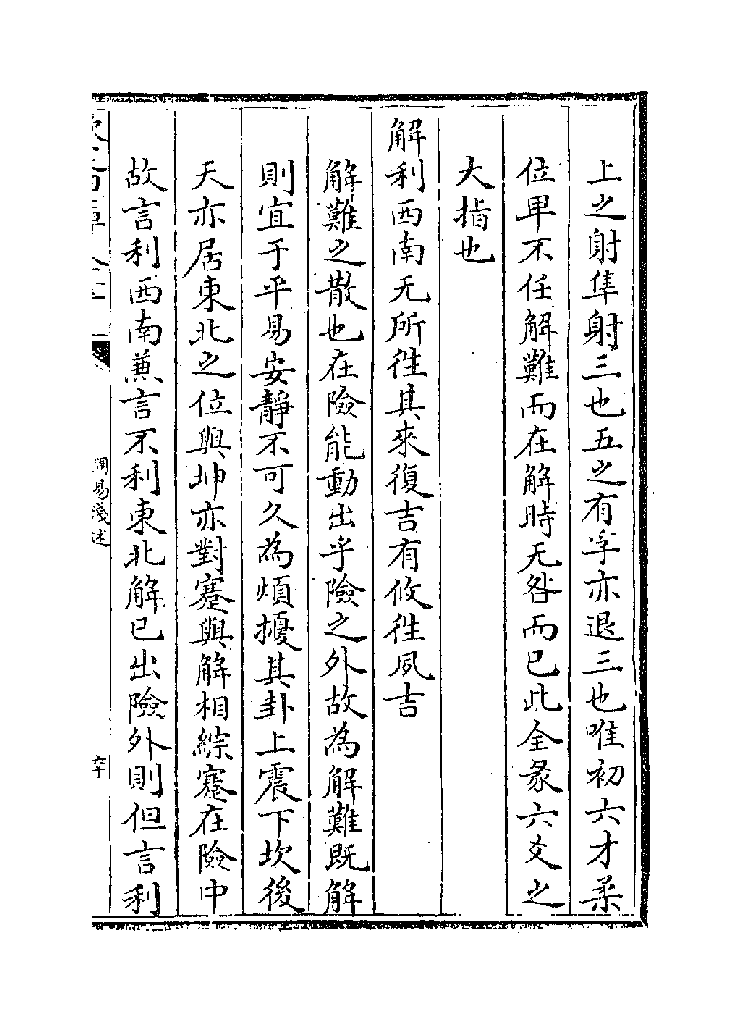 上之射隼射三也五之有孚亦退三也唯初六才柔
位卑不任解難而在解時无咎而已此全彖六爻之
大指也
解利西南无所往其來復吉有攸往夙吉
解難之散也在險能動出乎險之外故為解難既解
則宜于平易安靜不可久為煩擾其卦上震下坎後
天亦居東北之位與坤亦對蹇與解相綜蹇在險中
故言利西南兼言不利東北解已出險外則但言利
周易淺述